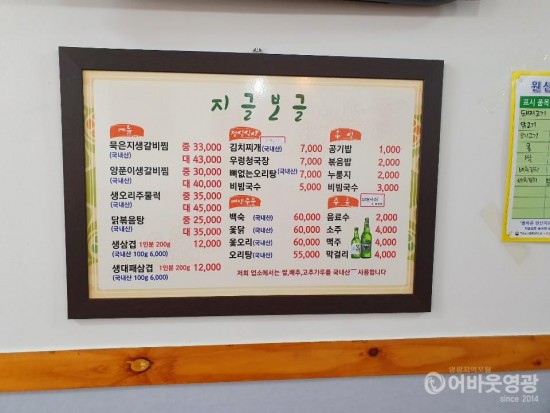 지글보글
메뉴
묵은지생갈비찜 중 33,000
(국내산) 대 43,000
양푼이생갈비찜 중 30,000
(국내산) 대 40,000
생오리주물럭 중 35,000
(국내산) 대 45,000
닭볶음탕 중 25,000
(국내산) 대 35,000
생삼겹 1인분 200g 12,000
(국내산 100g 6,000)
생대패삼겹 1인분 200g 12,000
(국내산 100g 6,000)
점심식사
김치찌개(국내산) 7,000
우렁청국장 7,000
뼈없는오리탕(국내산) 7,000
비빔국수 5,000
예약주문
백숙 (국내산) 60,000
옻닭 (국내산) 60,000
옻오리(국내산) 60,000
오리탕(국내산) 55,000
공기밥 1,000
볶음밥 2,000
누룽지 2,000
비빔국수 3,000
음료수 2,000
소주 4,000
맥주 4,000
막걸리 4,000
저희 업소에서는 쌀,배추,고추가루를 국내산 사용합니다
원산
표시 품목
돼지고기
닭고기
쌀
어바웃영광
since 2014